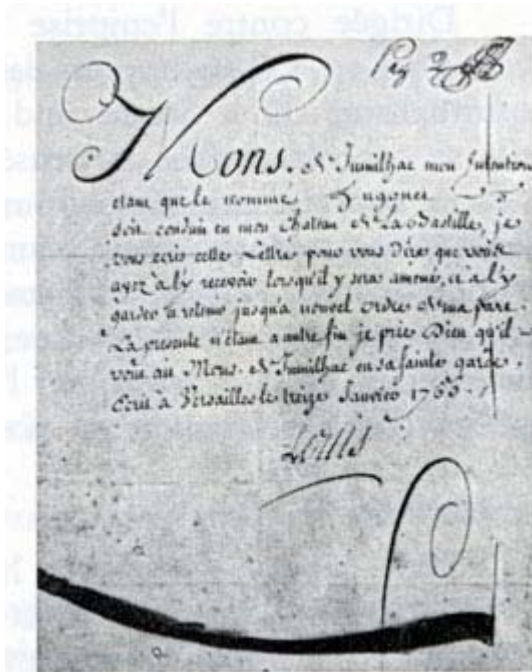 Dirigée contre l'emprise
Mons. de Jumilhac mon Intention
étant que le nommé Hugonet
soit conduit en mon Chateau de La Bastille, je
vous écris cette Lettre pour vous dire que vous
ayez à l'y recevoir lorsqu'il y sera amené, et à l'y
garder et retenir jusqu'à nouvel ordre de ma part.
La presente n'étant a autre fin je prie Dieu qu'il
vous ait Mons. de Jumilhac en sa sainte garde.
Ecrit à Versailles le treize Janvier 1765.
Louis